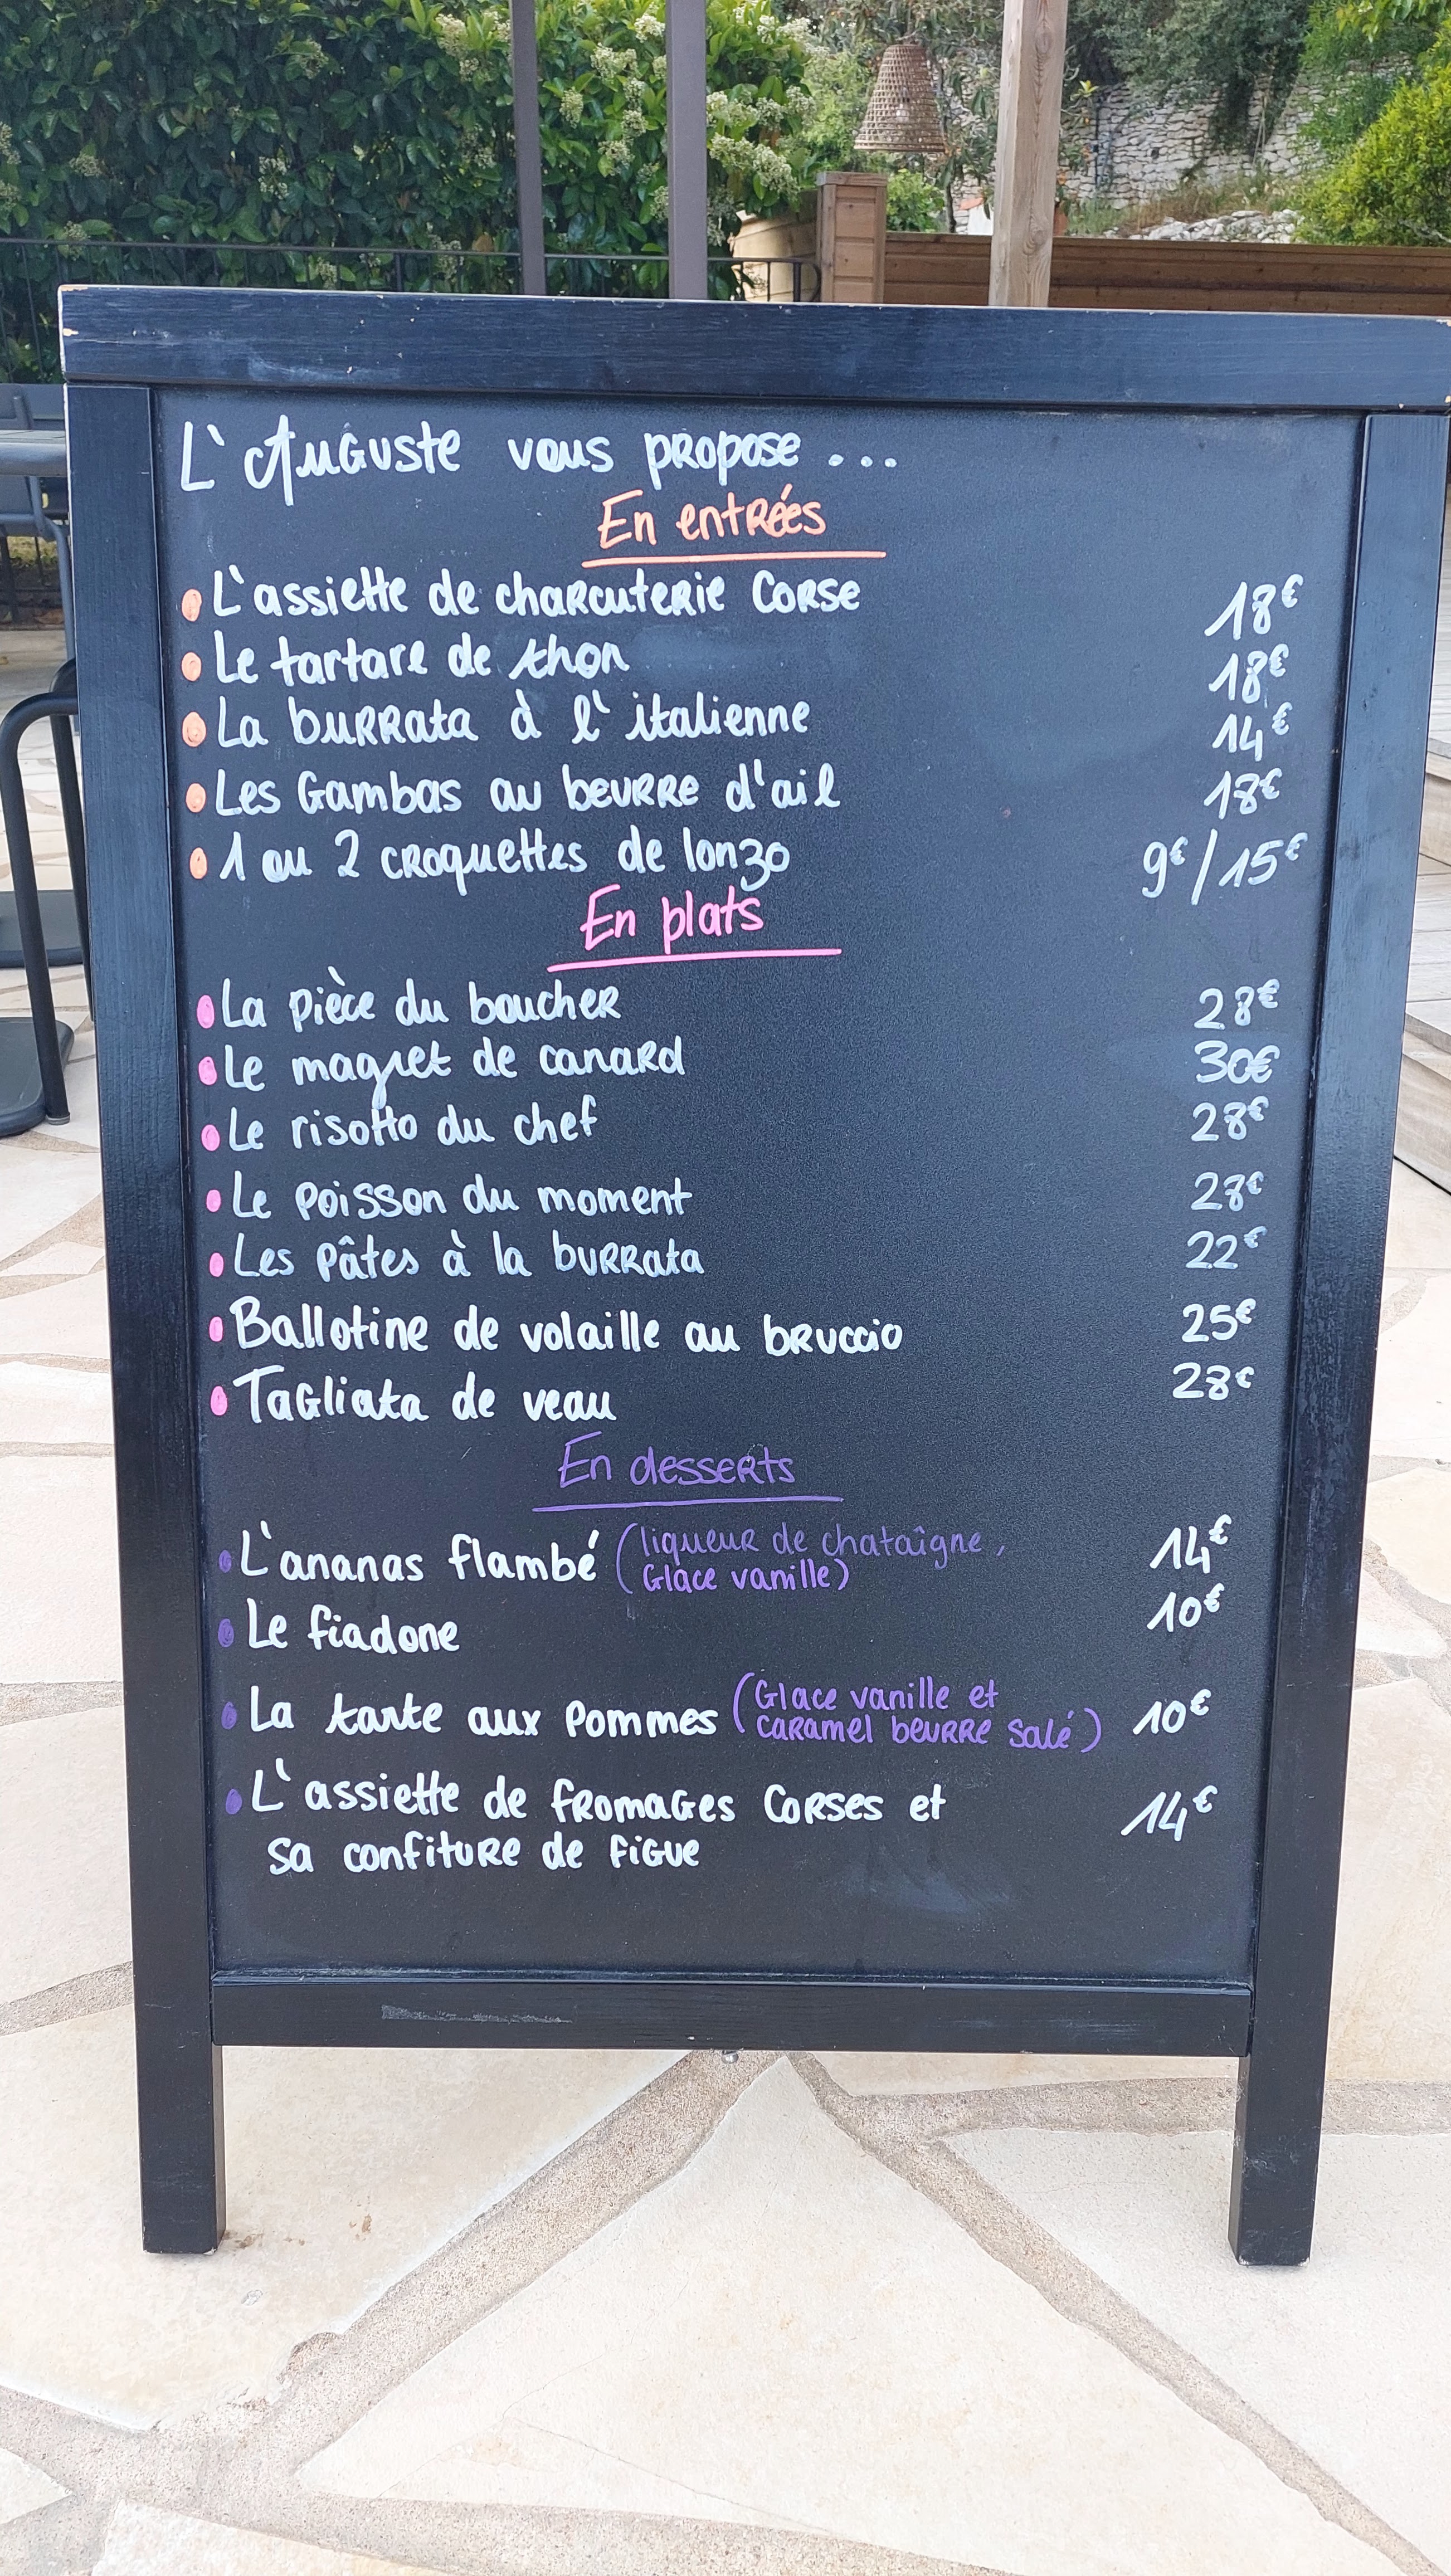 L'Auguste vous propose ...
En entrées
L'assiette de charcuterie Corse 18€
Le tartare de thon 18€
La burrata à l'italienne 14€
Les Gambas au beurre d'ail 18€
1 ou 2 croquettes de lonzo 9€/15€
En plats
La pièce du boucher 28€
Le magret de canard 30€
Le risotto du chef 28€
Le poisson du moment 28€
Les pâtes à la burrata 22€
Ballotine de volaille au bruccio 25€
Tagliata de veau 28€
En desserts
L'ananas flambé (liqueur de chataîgne, 14€
Glace vanille)
Le fiadone 10€
La tarte aux pommes (Glace vanille et 10€
caramel beurre salé)
L'assiette de fromages Corses et 14€
sa confiture de figue